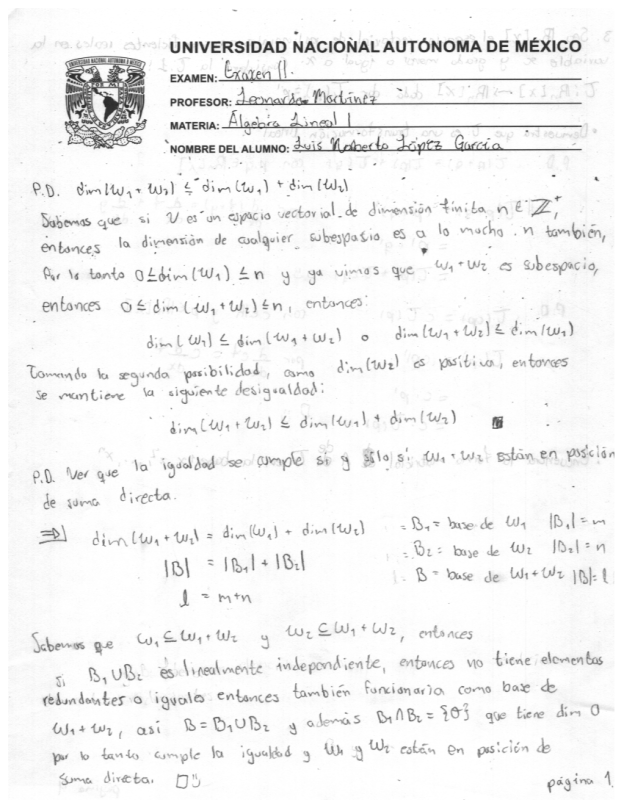 UNIVERSIDAD NACIONAL AUTÓNOMA DE MÉXICO
EXAMEN: Examen II.
PROFESOR: Leonardo Martínez
MATERIA: Álgebra Lineal I
NOMBRE DEL ALUMNO: Luis Norberto López García
P.D. dim(W₁+W₂) ≤ dim(W₁) + dim(W₂)
Sabemos que si V es un espacio vectorial de dimensión finita n ∈ ℤ⁺,
entonces la dimensión de cualquier subespasio es a lo mucho n también,
Por lo tanto 0≤dim(W₁) ≤n y ya vimos que W₁+W₂ es subespacio,
entonces 0 ≤ dim(W₁+W₂) ≤n, entonces:
dim(W₁) ≤ dim(W₁+W₂) o dim(W₁+W₂) ≤ dim(W₁)
Tomando la segunda posibilidad, como dim(W₂) es positiva, entonces
se mantiene la siguiente desigualdad:
dim(W₁+W₂) ≤ dim(W₁) + dim(W₂)
P.D. Ver que la igualdad se cumple si y sólo si W₁+W₂ están en posición
de suma directa.
⇒| dim(W₁+W₂) = dim(W₁) + dim(W₂) B₁ = base de W₁ |B₁| = m
|B| = |B₁| + |B₂| B₂ = base de W₂ |B₂| = n
l = m+n B = base de W₁+W₂ |B|= l
Sabemos que W₁ ⊆ W₁+W₂ y W₂ ⊆ W₁+W₂, entonces
si B₁∪B₂ es linealmente independiente, entonces no tiene elementos
redundantes o iguales entonces también funcionaría como base de
W₁+W₂, así B = B₁∪B₂ y además B₁∩B₂ = {0} que tiene dim 0
por lo tanto cumple la igualdad y W₁ y W₂ están en posición de
suma directa. □
página 1